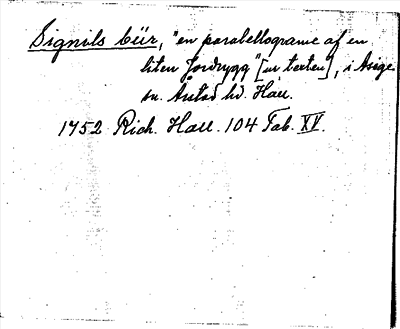 Signuls bür, "en parabellograme af en
liten jordrygg" [ur texten], i Asige
sn. Årstad hd. Hall.
1752 Rich. Hall. 104 Tab. XV.